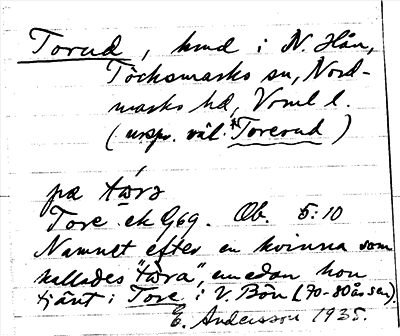 Torud, hmd i N. Hån,
Töcksmarks sn, Nord-
marks hd, Vrml l.
(urspr. väl *Torerud)
på
Tore ek G69. Ob. 5:10
Namnet efter en kvinna som
kallades "tära", emedan hon
tjänt i Tore i V. Bön (70-80 år sen).
E. Andersson 1935.